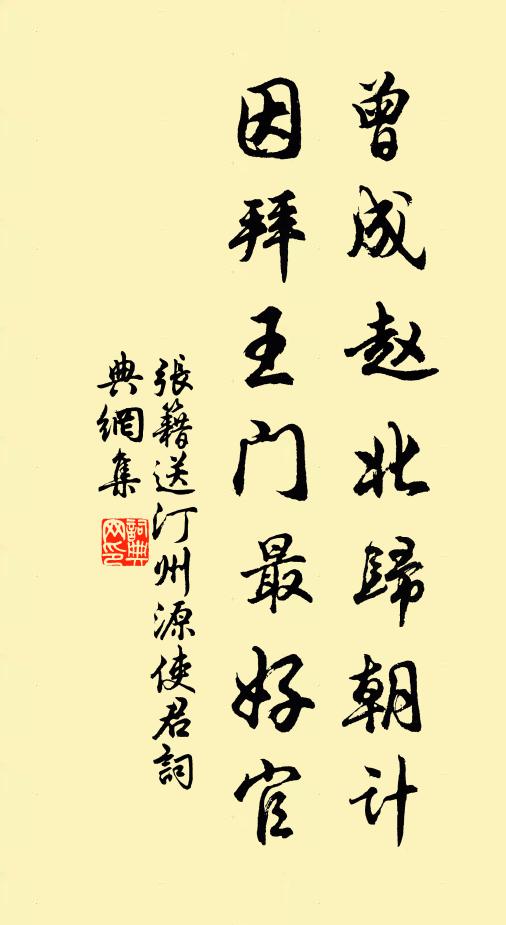 曾成赵北歸朝计
因拜王门最好官
張籍送汀州源使君詞
典網集
詞典网印